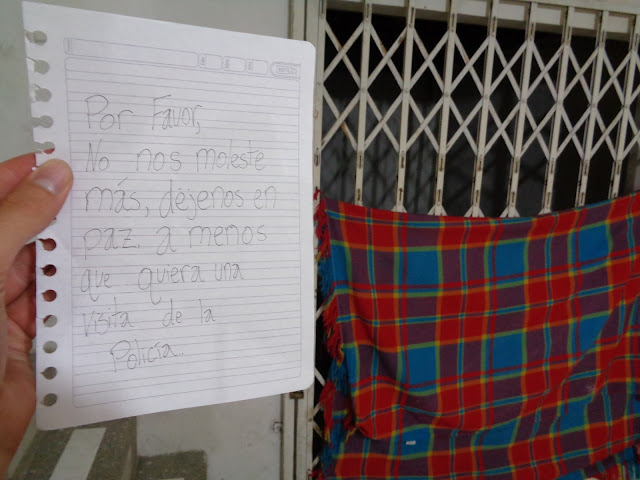 Por Favor,
No nos moleste
más, déjenos en
paz. a menos
que quiera una
visita de la
Policía..